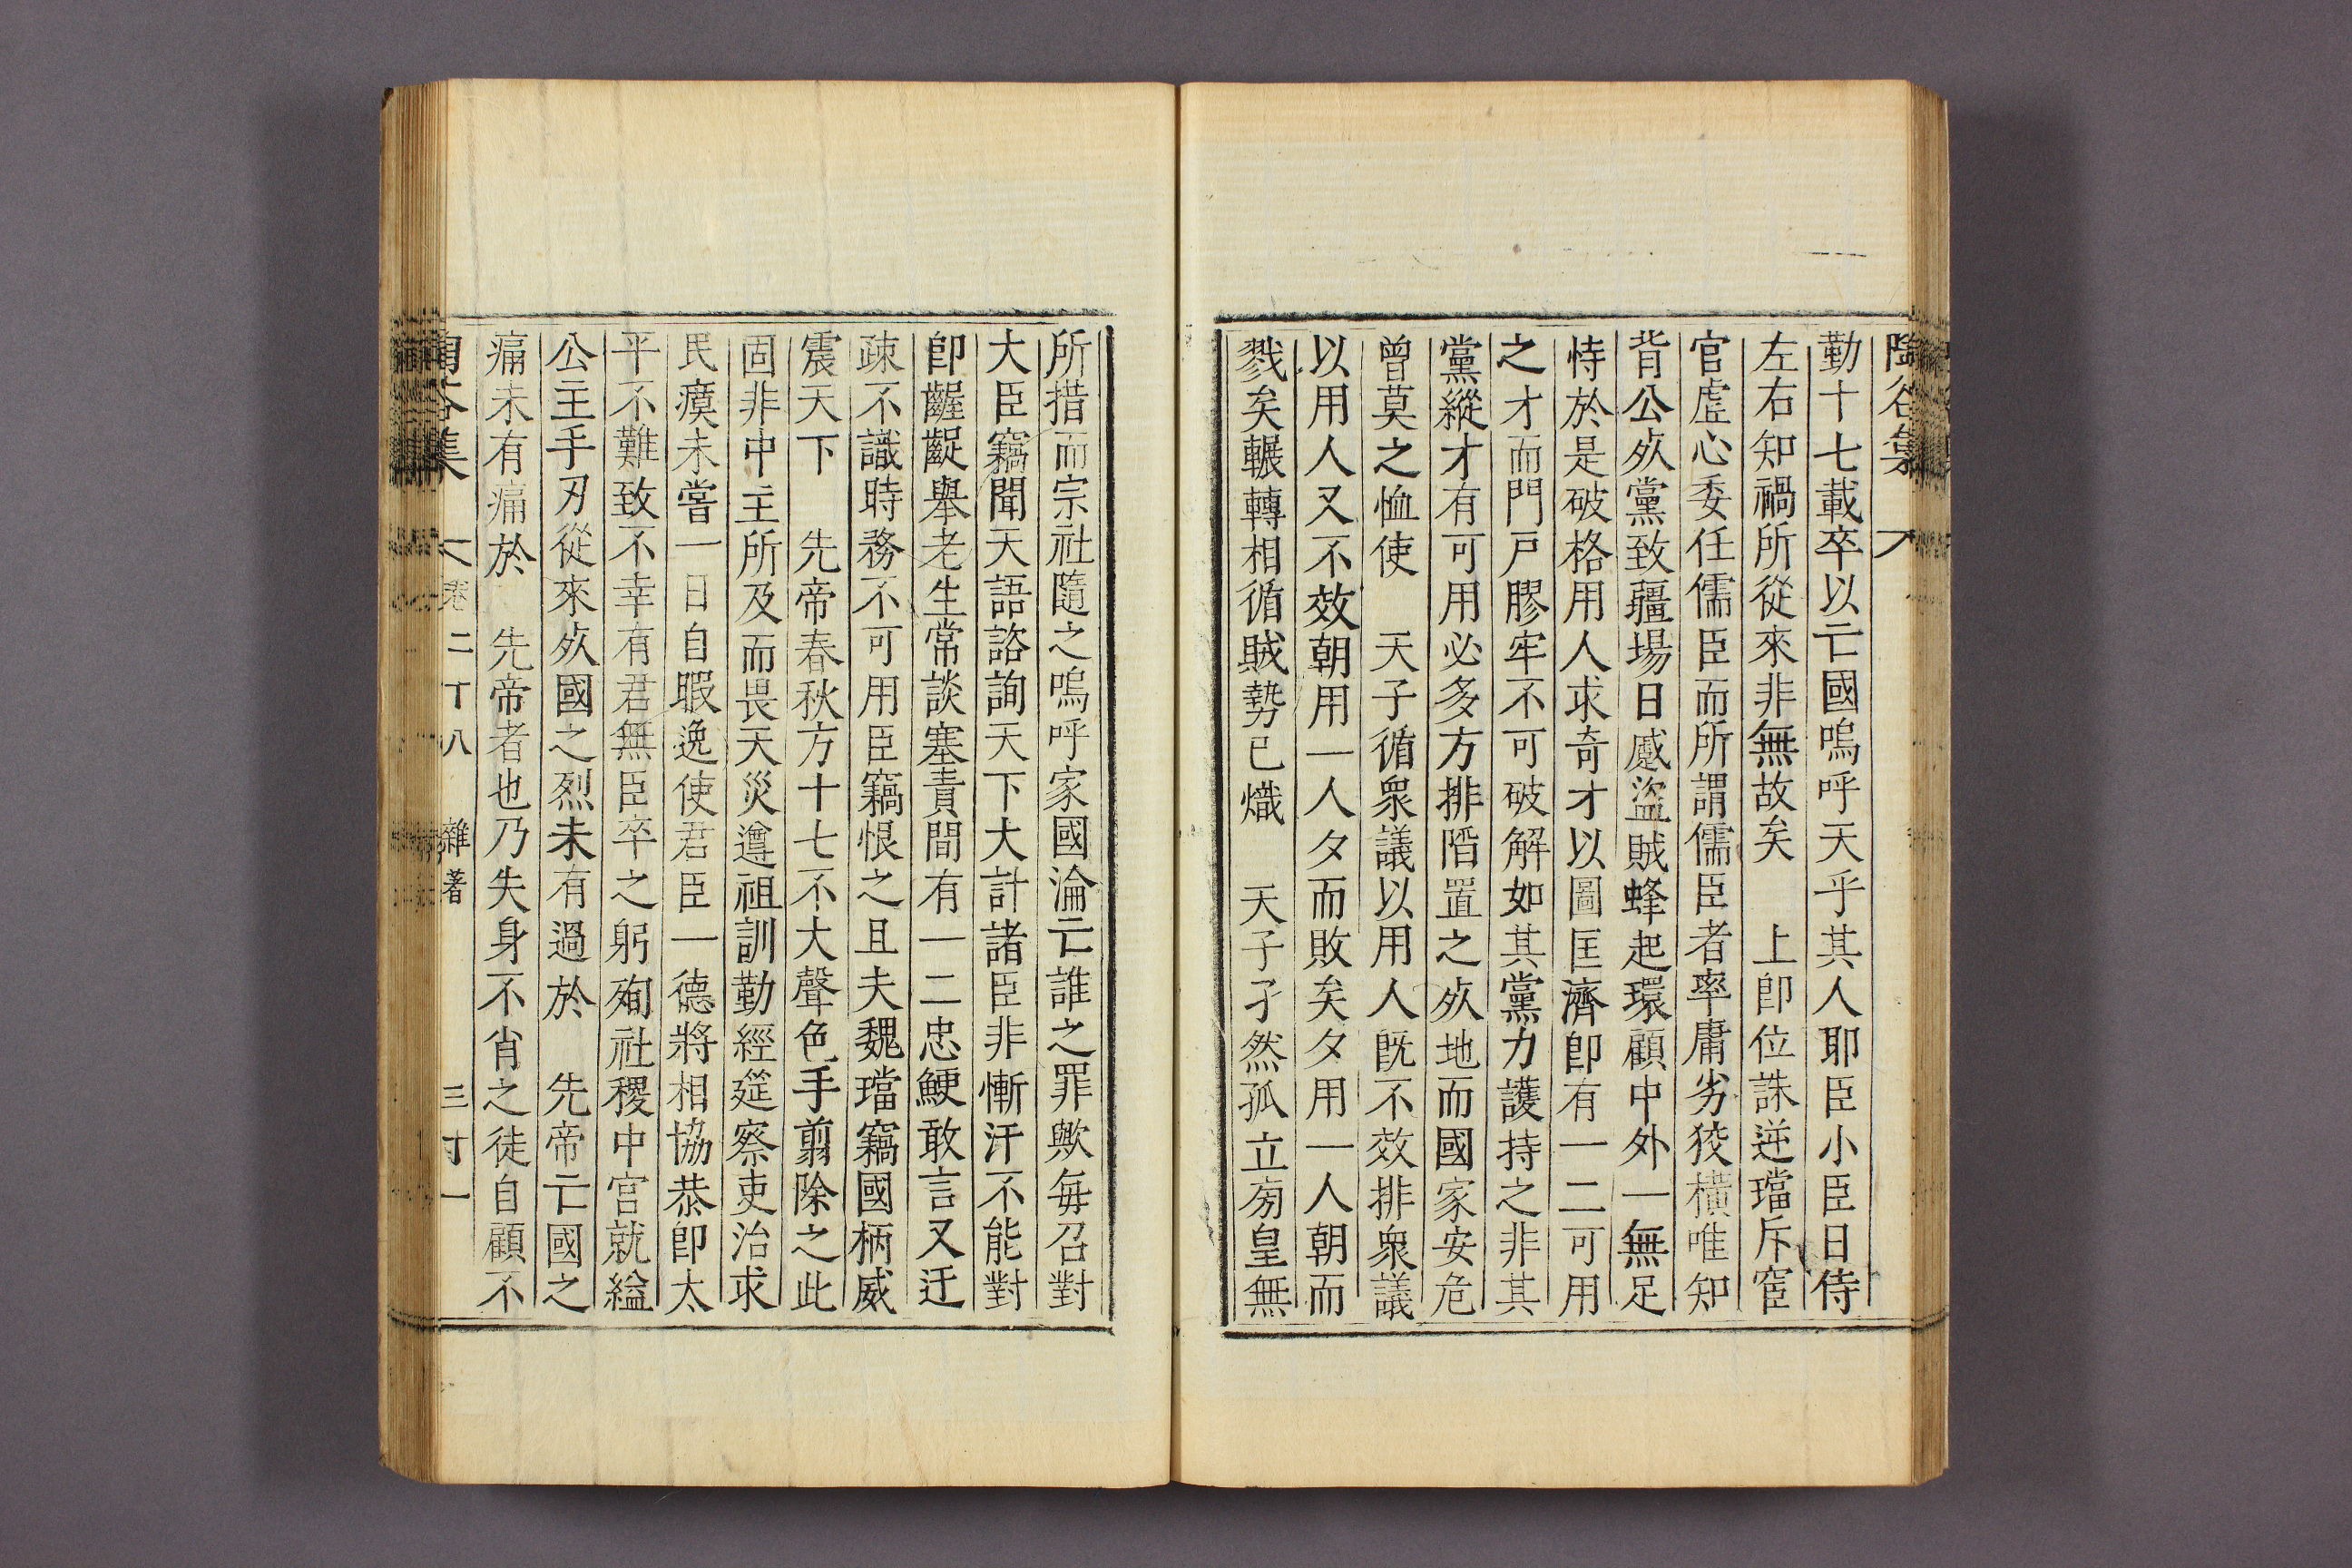 陶谷集
勤十七載卒以亡國嗚呼天乎其人耶臣小臣日侍
左右知禍所從來非無故矣　上卽位誅逆璫斥宦
官虛心委任儒臣而所謂儒臣者率庸劣狡橫唯知
背公死黨致疆場日慼盜賊蜂起環顧中外一無足
恃於是破格用人求奇才以圖匡濟卽有一二可用
之才而門戸膠牢不可破解如其黨力護持之非其
黨縱才有可用必多方排陷置之死地而國家安危
曾莫之恤使　天子循衆議以用人既不效排衆議
以用人又不效朝用一人夕而敗矣夕用一人朝而
戮矣輾轉相循賊勢已熾　天子孑然孤立彷皇無
所措而宗社隨之嗚呼家國淪亡誰之罪歟每召對
大臣竊聞天語諮詢天下大計諸臣非慚汗不能對
卽齷齪舉老生常談塞責間有一二忠鯁敢言又迂
疎不識時務不可用臣竊恨之且夫魏璫竊國柄威
震天下　先帝春秋方十七不大聲色手翦除之此
固非中主所及而畏天災遵祖訓勤經筵察吏治求
民瘼未嘗一日自暇逸使君臣一德將相協恭卽太
平不難致不幸有君無臣卒之躬殉社稷中宮就縊
公主手刃從來死國之烈未有過於　先帝亡國之
痛未有痛於　先帝者也乃失身不肖之徒自顧不
陶谷集　卷二十八　雜著　三十一